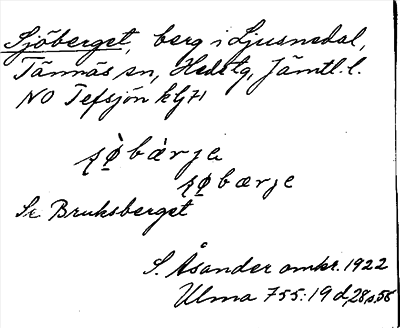 Sjöberget, berg i Ljusnedal,
Tännäs sn, Hedetg, Jämtl. l.
NO Tefsjön
sø̀bàrje
søbærje
Se Bruksberget
S. Åsander omkr. 1922
Ulma 755:19 d, 28, s. 56